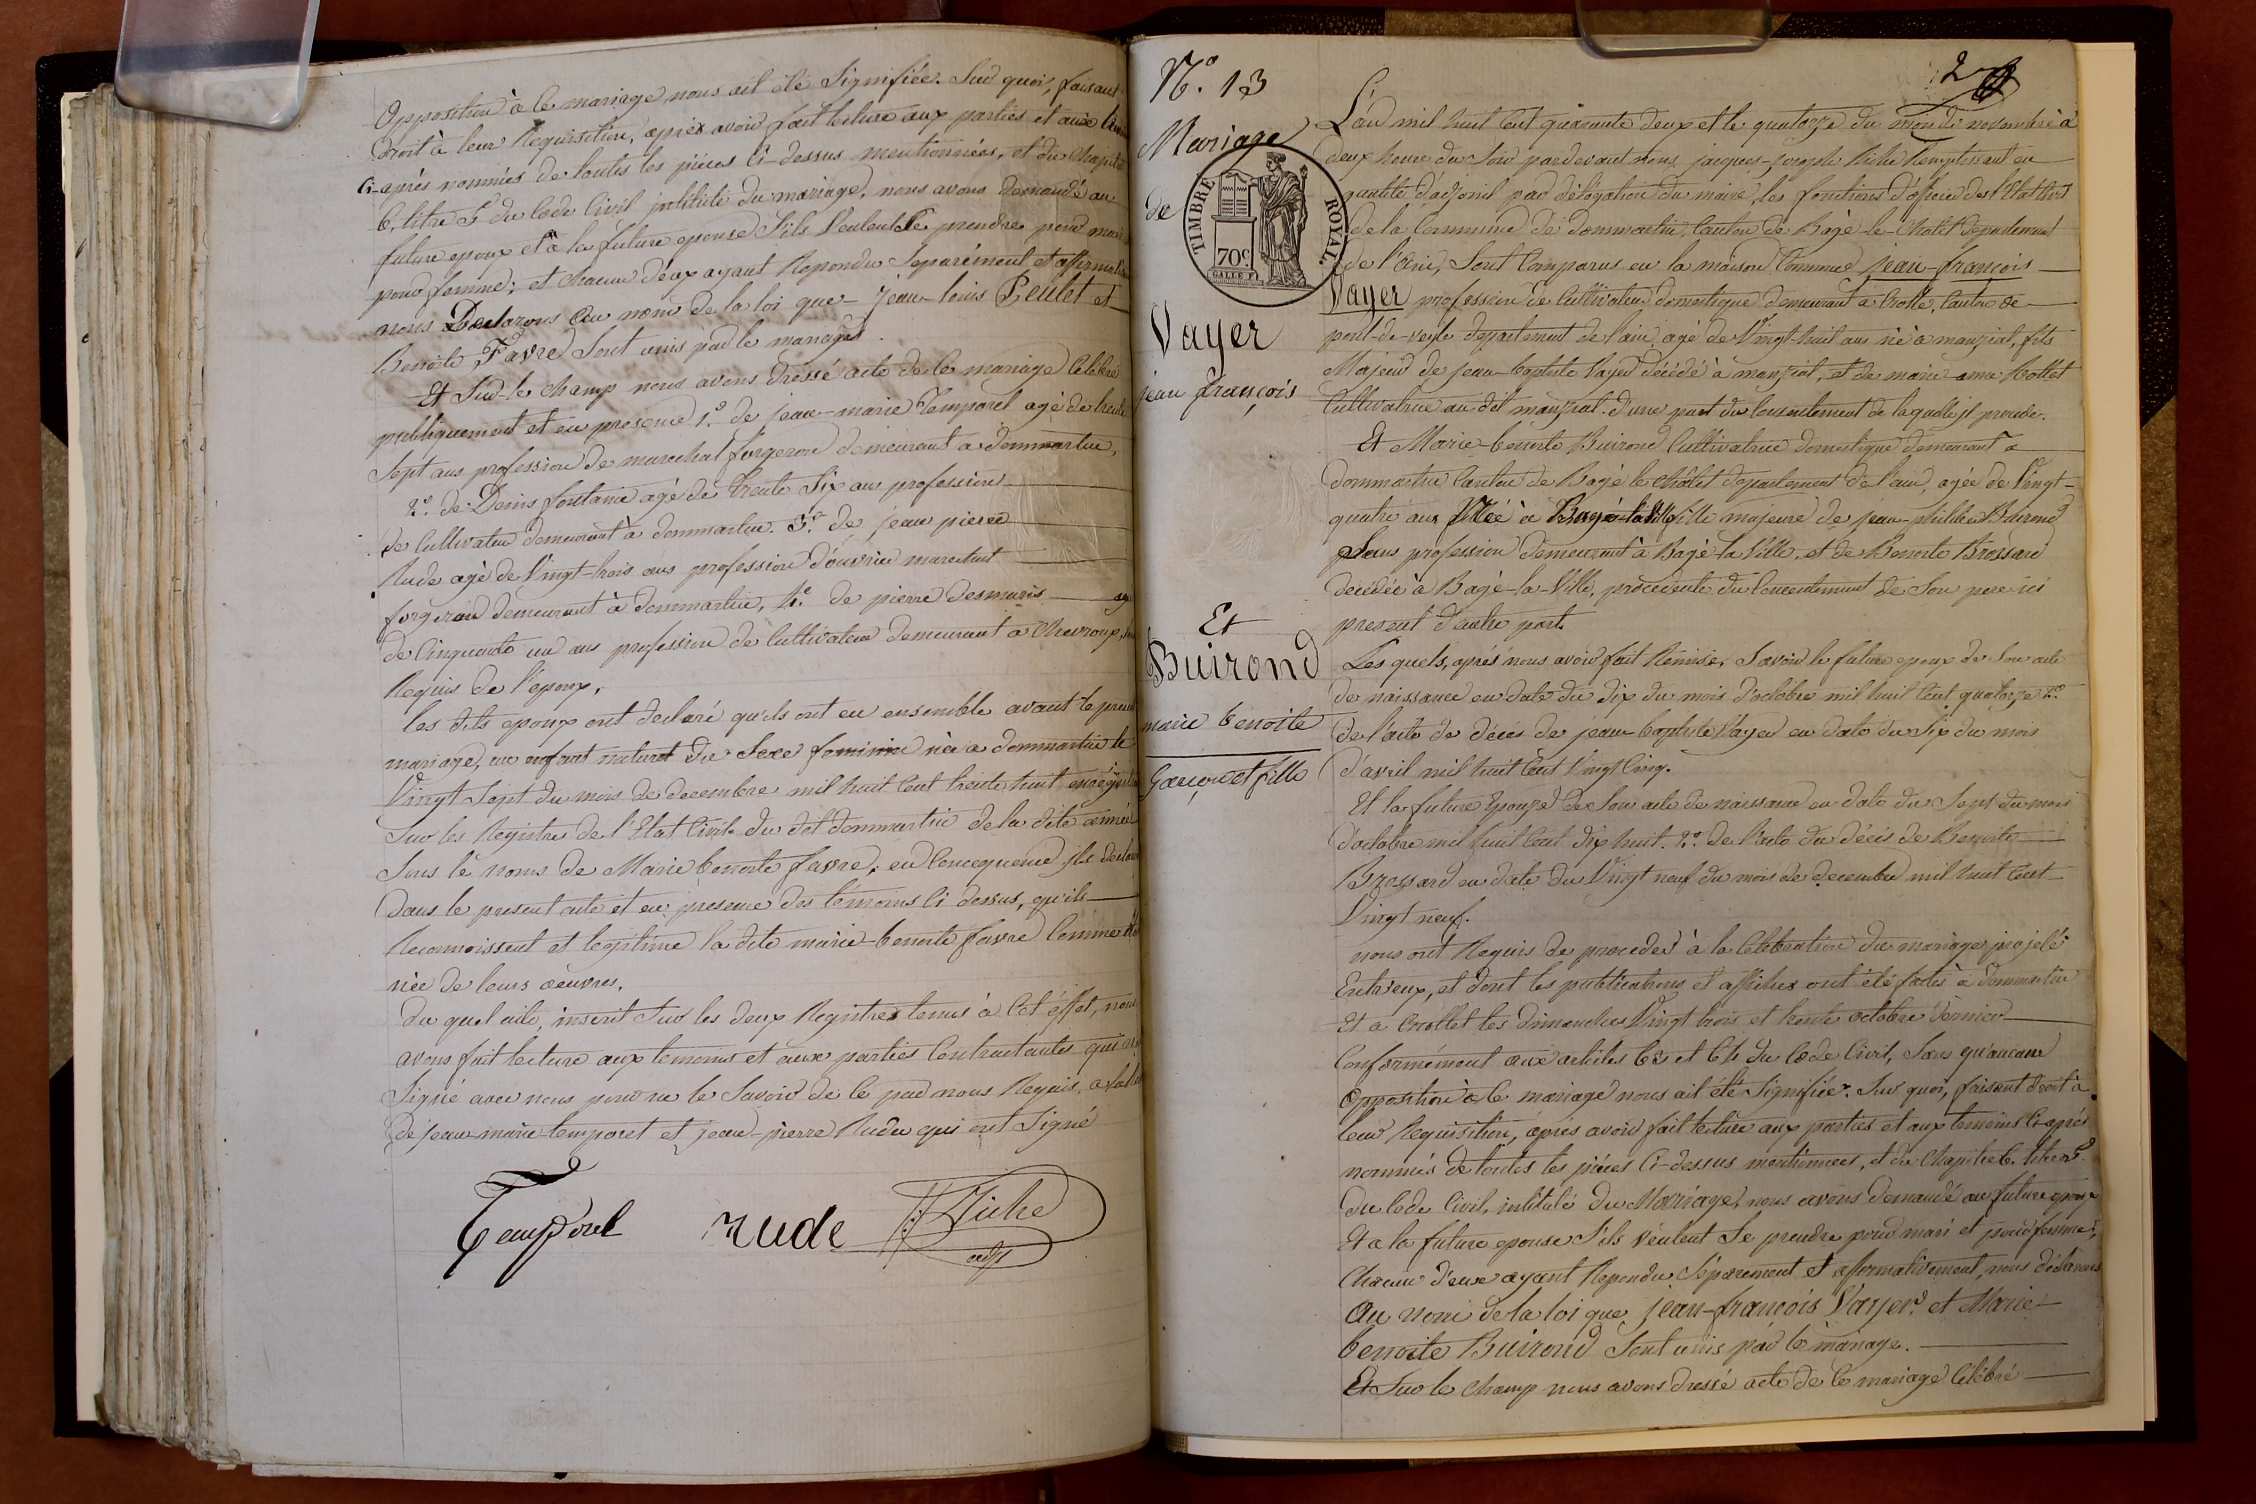 Opposition à ce mariage nous ait été signifiée. Sur quoi, faisant
droit à leur Requisition, après avoir fait lecture aux parties et aux
ci-après nommés de toutes les pièces ci-dessus mentionnées, et du Chapitre
6, titre 5 du Code Civil intitulé du mariage, nous avons demandé au
future epoux et à la future epouse s'ils veulent se prendre pour mari
pour femme; et chacun d'eux ayant Repondu Separément et affirmativ
nous Declarons au nom de la loi que jean-louis Peulet et
Benoite Favre Sont unis par le mariage.
Et Sur-le champ nous avons dressé acte de ce mariage Célébré
publiquement et en presence 1.° de jean-marie Temporel agé de trente
Sept ans profession de marechal forgeron demeurant à dommartin,
2.° de Denis fontaine agé de trente Six ans profession
de Cultivateur demeurant à dommartin. 3.° de jean pierre
Rude agé de Vingt-trois ans profession d'ouvrier marechal
forgeron demeurant à dommartin, 4.° de pierre desmaris agé
de Cinquante un ans profession de Cultivateur demeurant a Chevroux,
Requis de l'epoux.
les dits epoux ont declaré qu'ils ont eu ensemble avant le present
mariage, un enfant naturel du Sexe feminin née a dommartin le
Vingt Sept du mois de decembre mil huit Cent trente huit enregistré
Sur les Registres de l'Etat Civil du dit dommartin de la dite année
Sous le noms de Marie benoite favre, en Concequence ils
dans le present acte et en presence des témoins ci dessus, qu'ils
Reconnoissent et legitime la dite marie-benoite favre Comme
née de leurs oeuvres.
du quel acte, inscrit Sur les deux Registres tenus à Cet éffet, nous
avons fait lecture aux temoins et aux parties Contractantes qui
Signé avec nous pour ne le Savoir de ce par nous Requis,
de jean-marie temporel et jean-pierre Rude qui ont Signé
Temporel rude Tiche
adjt
N.° 13
Mariage
de
TIMBRE ROYAL.
70c.
Vayer
jean françois
Et
Buirond
marie benoite
Garçon et fille
L'an mil huit Cent quarante deux et le quatorze du mois de novembre à
deux heure du Soir pardevant nous jacques-joseph Remplissant en
qualité d'adjoint par délégation du maire, les fonctions d'officier de l'Etat Civil
de la Commune de dommartin, Canton de Bagé-le-Chatel Departement
de l'ain, Sont Comparus en la maison Commune jean-françois
Vayer profession de Cultivateur domestique demeurant a Crottet, Canton de
pont-de-veyle departement de l'ain, agé de Vingt-huit ans né à manziat, fils
Majeur de jean-baptiste Vayer décédé à manziat, et de marie-anne
Cultivatrice au dit manziat. d'une part du Consentement de laquelle il procede.
Et Marie-benoite Buirond Cultivatrice domestique demeurant a
dommartin Canton de Bagé le Châtel departement de l'ain, agée de Vingt-
quatre ans Née à Bagé-la-Ville fille majeure de jean-philibert Buirond
Sans profession demeurant à Bagé-la Ville, et de Benoite Brossard
décédée à Bagé-la-Ville, procedente du Consentement de Son pere ici
present d'autre part.
Les quels, après nous avoir fait Remise, Savoir le future epoux de Son acte
de naissance en date du dix du mois d'octobre mil huit Cent quatorze 2.°
de l'acte de décés de jean-baptiste Vayer en date du Six du mois
d'avril mil huit Cent Vingt Cinq.
Et la future Epouze de Son acte de naissance en date du Sept du mois
d'octobre mil huit Cent dix huit. 2.° de l'acte du décés de Benoite
Brossard en date du Vingt neuf du mois de decembre mil huit Cent
Vingt neuf.
nous ont Requis de proceder à la Célébration du mariage projeté
Entr'eux, et dont les publications et affiches ont été faites à dommartin
Et a Crottet les dimanches Vingt trois et trente octobre dernier
Conformément aux articles 63 et 64 du Code Civil, Sans qu'aucune
Opposition à ce mariage nous ait été Signifiée. Sur quoi, faisant droit à
leur Requisition, après avoir fait lecture aux parties et aux temoins Ci-après
nommés de toutes les pièces Ci-dessus mentionnées, et du Chapitre 6. titre 5.
du Code Civil, intitulé du Mariage, nous avons demandé au future epoux
Et a la future epouse S'ils veulent Se prendre pour mari et pour femme,
Chacun d'eux ayant Repondu Séparement et affirmativement, nous déclarons
Au nom de la loi que jean-françois Vayer et Marie
benoite Buirond Sont unis par le mariage.
Et Sur le Champ nous avons dressé acte de ce mariage Célébré